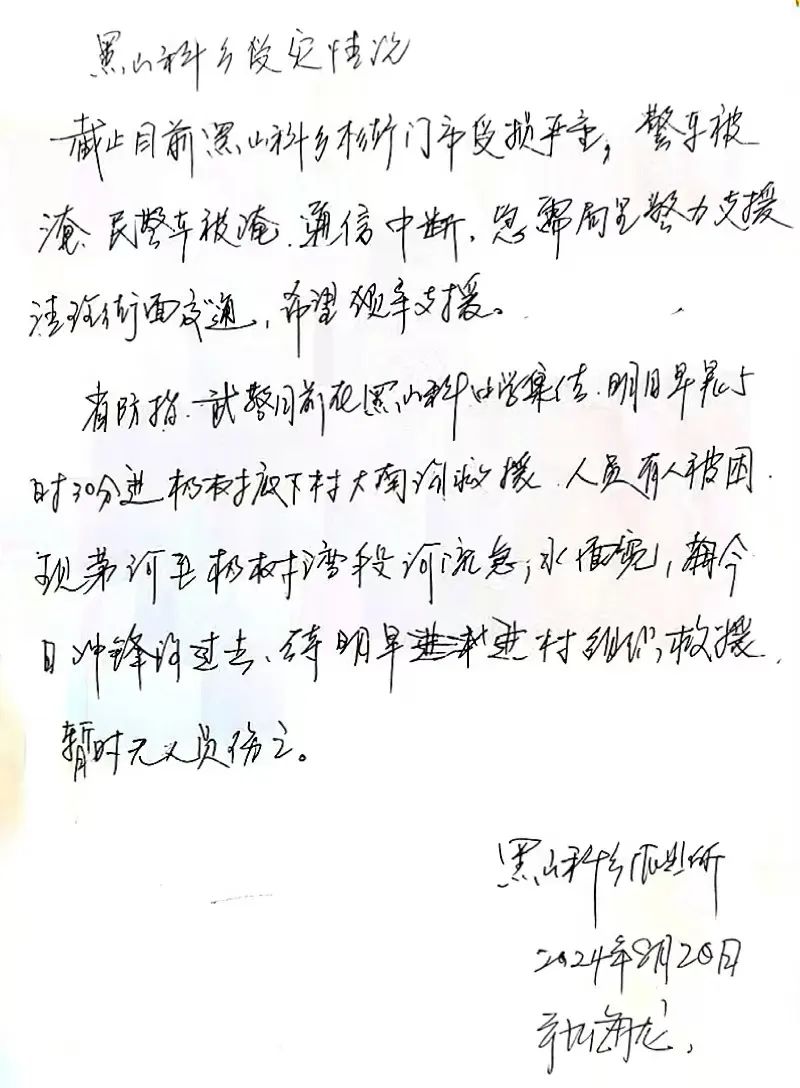 黑山科乡受灾情况
截止目前黑山科乡街门市受损严重，警车被
淹、民警车被淹、通信中断，急需局里警力支援
清理街面交通，希望领率支援。
省防指、武警目前在黑山科中学集结、明日早晨5
时30分进杨树底下村大南沟救援、人员有人被困、
现茅河至杨树湾段河流急，水面宽，
日冲锋过去、待明早进村组织救援，
暂时无人员伤亡。
黑山科乡派出所
2024年8月20日
海龙